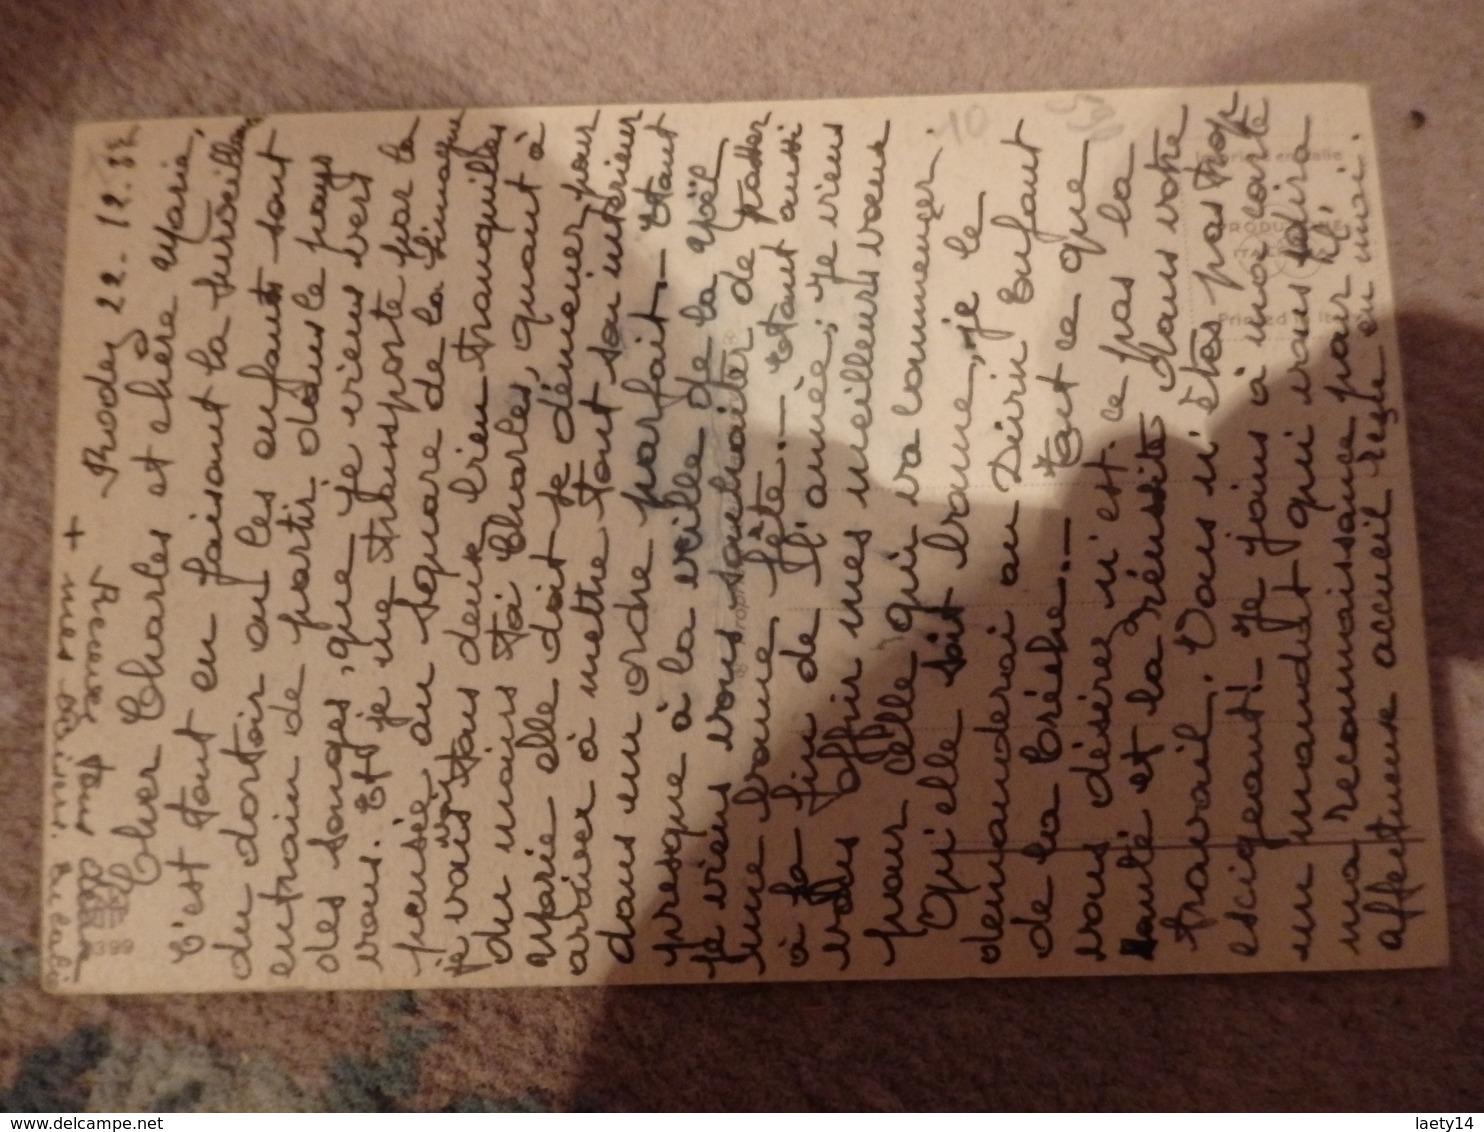 Rodez 22.12.32
Cher Charles et chère Marie,
C'est tout en faisant la surveillance
du dortoir où les enfants sont
entrain de partir dans le pays
des songes, que je viens vers
vous. Et je me transporte par la
pensée au square de la
je vais vous deux bien tranquilles
du moins toi Charles, quant à
Marie elle doit se démener pour
arriver à mettre tout son intérieur
dans un ordre parfait. - Etant
presque à la veille de la Noël
je viens vous souhaiter de passer
une bonne fête. - Etant aussi
à la fin de l'année, je viens
vous offrir mes meilleurs vœux
pour celle qui va commencer.
Qu'elle soit bonne, je le
demanderai au Divin Enfant
de la Crèche. - Tout ce que
vous désirez n'est-ce pas la
santé et la réussite dans votre
travail. Vous n'êtes pas trop
escigeant! - Je joins à mor carte
un mandat qui vous dira
ma reconnaissance pour le
affectueux accueil reçu en moi.
+ Recevez tous
mes baisers.
399
10
539
Printed in Italy